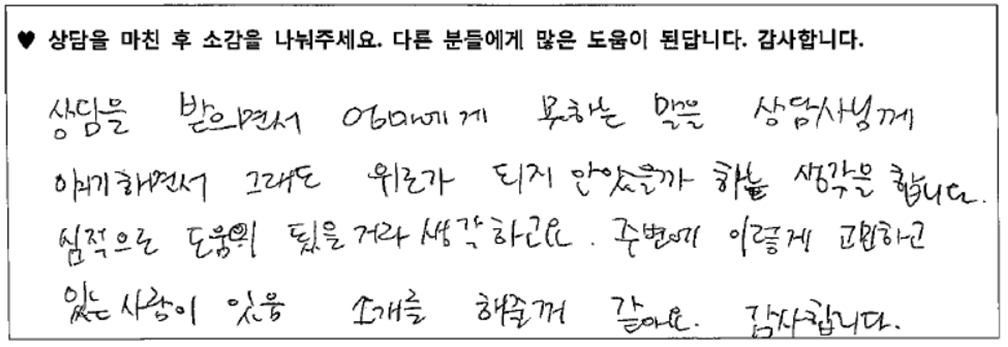 ♥ 상담을 마친 후 소감을 나눠주세요. 다른 분들에게 많은 도움이 된답니다. 감사합니다.
상담을 받으면서 엄마에게 못하는 말을 상담사님께
이야기하면서 그래도 위로가 되지 안았을까 하는 생각을 합니다.
심적으로 도움이 됬을거라 생각하고요. 주변에 이렇게 고민하고
있는 사람이 있음 소개를 해줄꺼 같아요. 감사합니다.